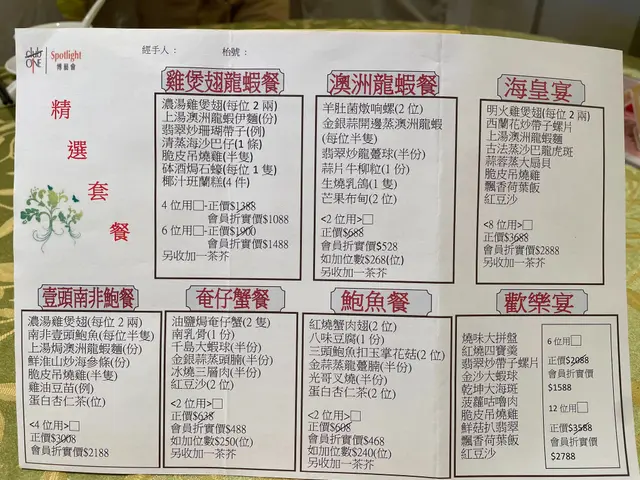 club ONE
Spotlight
博藝會
經手人：
枱號：
精選套餐
雞煲翅龍蝦餐
濃湯雞煲翅(每位 2 兩)
上湯澳洲龍蝦伊麵(份)
翡翠炒珊瑚帶子(例)
清蒸海沙巴仔(1 條)
脆皮吊燒雞(半隻)
砵酒焗石蠔(每位 1 隻)
椰汁班蘭糕(4 件)
4 位用□-正價$1388
會員折實價$1088
6 位用□-正價$1900
會員折實價$1488
另收加一茶芥
澳洲龍蝦餐
羊肚菌燉响螺(2 位)
金銀蒜開邊蒸澳洲龍蝦
(每位半隻)
翡翠炒龍躉球(半份)
蒜片牛柳粒(1 份)
生燒乳鴿(1 隻)
芒果布甸(2 位)
<2 位用>□
正價$688
會員折實價$528
如加位數$268(位)
另收加一茶芥
海皇宴
明火雞煲翅(每位 2 兩)
西蘭花炒帶子螺片
上湯澳洲龍蝦麵
古法蒸沙巴龍虎斑
蒜蓉蒸大扇貝
脆皮吊燒雞
飄香荷葉飯
紅豆沙
<8 位用>□
正價$3688
會員折實價$2888
另收加一茶芥
壹頭南非鮑餐
濃湯雞煲翅(每位 2 兩)
南非壹頭鮑魚(每位半隻)
上湯焗澳洲龍蝦麵(份)
鮮淮山炒海參條(份)
脆皮吊燒雞(半隻)
雞油豆苗(例)
蛋白杏仁茶(位)
<4 位用>□
正價$3008
會員折實價$2188
奄仔蟹餐
油鹽焗奄仔蟹(2 隻)
南乳骨(1 份)
千島大蝦球(半份)
金銀蒜蒸頭腩(半份)
冰燒三層肉(半份)
紅豆沙(2 位)
<2 位用>□
正價$638
會員折實價$488
如加位數$250(位)
另收加一茶芥
鮑魚餐
紅燒蟹肉翅(2 位)
八味豆腐(1 份)
三頭鮑魚扣玉掌花菇(2 位)
金蒜蒸龍躉腩(半份)
光哥叉燒(半份)
蛋白杏仁茶(2 位)
<2 位用>□
正價$608
會員折實價$468
如加位數$240(位)
另收加一茶芥
歡樂宴
燒味大拼盤
紅燒四寶羹
翡翠炒帶子螺片
金沙大蝦球
乾坤大海斑
菠蘿咕嚕肉
脆皮吊燒雞
鮮菇扒翡翠
飄香荷葉飯
紅豆沙
6 位用□
正價$2088
會員折實價
$1588
12 位用□
正價$3588
會員折實價
$2788